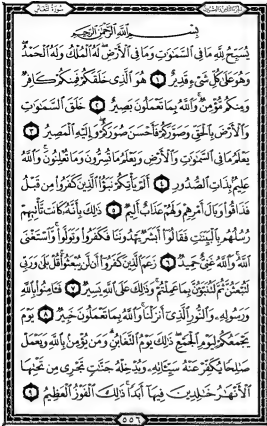 سورة التغابن
الجزء الثامن والعشرون
بسم الله الرحمن الرحيم
يُسَبِّحُ لِلَّهِ مَا فِي السَّمَٰوَٰتِ وَمَا فِي الْأَرْضِ لَهُ الْمُلْكُ وَلَهُ الْحَمْدُ
وَهُوَ عَلَىٰ كُلِّ شَيْءٍ قَدِيرٌ ١ هُوَ الَّذِي خَلَقَكُمْ فَمِنكُمْ كَافِرٌ
وَمِنكُم مُّؤْمِنٌ وَاللَّهُ بِمَا تَعْمَلُونَ بَصِيرٌ ٢ خَلَقَ السَّمَٰوَٰتِ
وَالْأَرْضَ بِالْحَقِّ وَصَوَّرَكُمْ فَأَحْسَنَ صُوَرَكُمْ وَإِلَيْهِ الْمَصِيرُ ٣
يَعْلَمُ مَا فِي السَّمَٰوَٰتِ وَالْأَرْضِ وَيَعْلَمُ مَا تُسِرُّونَ وَمَا تُعْلِنُونَ وَاللَّهُ
عَلِيمٌ بِذَاتِ الصُّدُورِ ٤ أَلَمْ يَأْتِكُمْ نَبَؤُا۟ الَّذِينَ كَفَرُوا مِن قَبْلُ
فَذَاقُوا وَبَالَ أَمْرِهِمْ وَلَهُمْ عَذَابٌ أَلِيمٌ ٥ ذَٰلِكَ بِأَنَّهُ كَانَت تَّأْتِيهِمْ
رُسُلُهُم بِالْبَيِّنَٰتِ فَقَالُوا أَبَشَرٌ يَهْدُونَنَا فَكَفَرُوا وَتَوَلَّوا وَّاسْتَغْنَى
اللَّهُ وَاللَّهُ غَنِيٌّ حَمِيدٌ ٦ زَعَمَ الَّذِينَ كَفَرُوا أَن لَّن يُبْعَثُوا قُلْ بَلَىٰ وَرَبِّي
لَتُبْعَثُنَّ ثُمَّ لَتُنَبَّؤُنَّ بِمَا عَمِلْتُمْ وَذَٰلِكَ عَلَى اللَّهِ يَسِيرٌ ٧ فَـَٔامِنُوا بِاللَّهِ
وَرَسُولِهِ وَالنُّورِ الَّذِي أَنزَلْنَا وَاللَّهُ بِمَا تَعْمَلُونَ خَبِيرٌ ٨ يَوْمَ
يَجْمَعُكُمْ لِيَوْمِ الْجَمْعِ ذَٰلِكَ يَوْمُ التَّغَابُنِ وَمَن يُؤْمِن بِاللَّهِ وَيَعْمَلْ
صَٰلِحًا يُكَفِّرْ عَنْهُ سَيِّـَٔاتِهِ وَيُدْخِلْهُ جَنَّٰتٍ تَجْرِي مِن تَحْتِهَا
الْأَنْهَٰرُ خَٰلِدِينَ فِيهَا أَبَدًا ذَٰلِكَ الْفَوْزُ الْعَظِيمُ ٩
٥٥٦